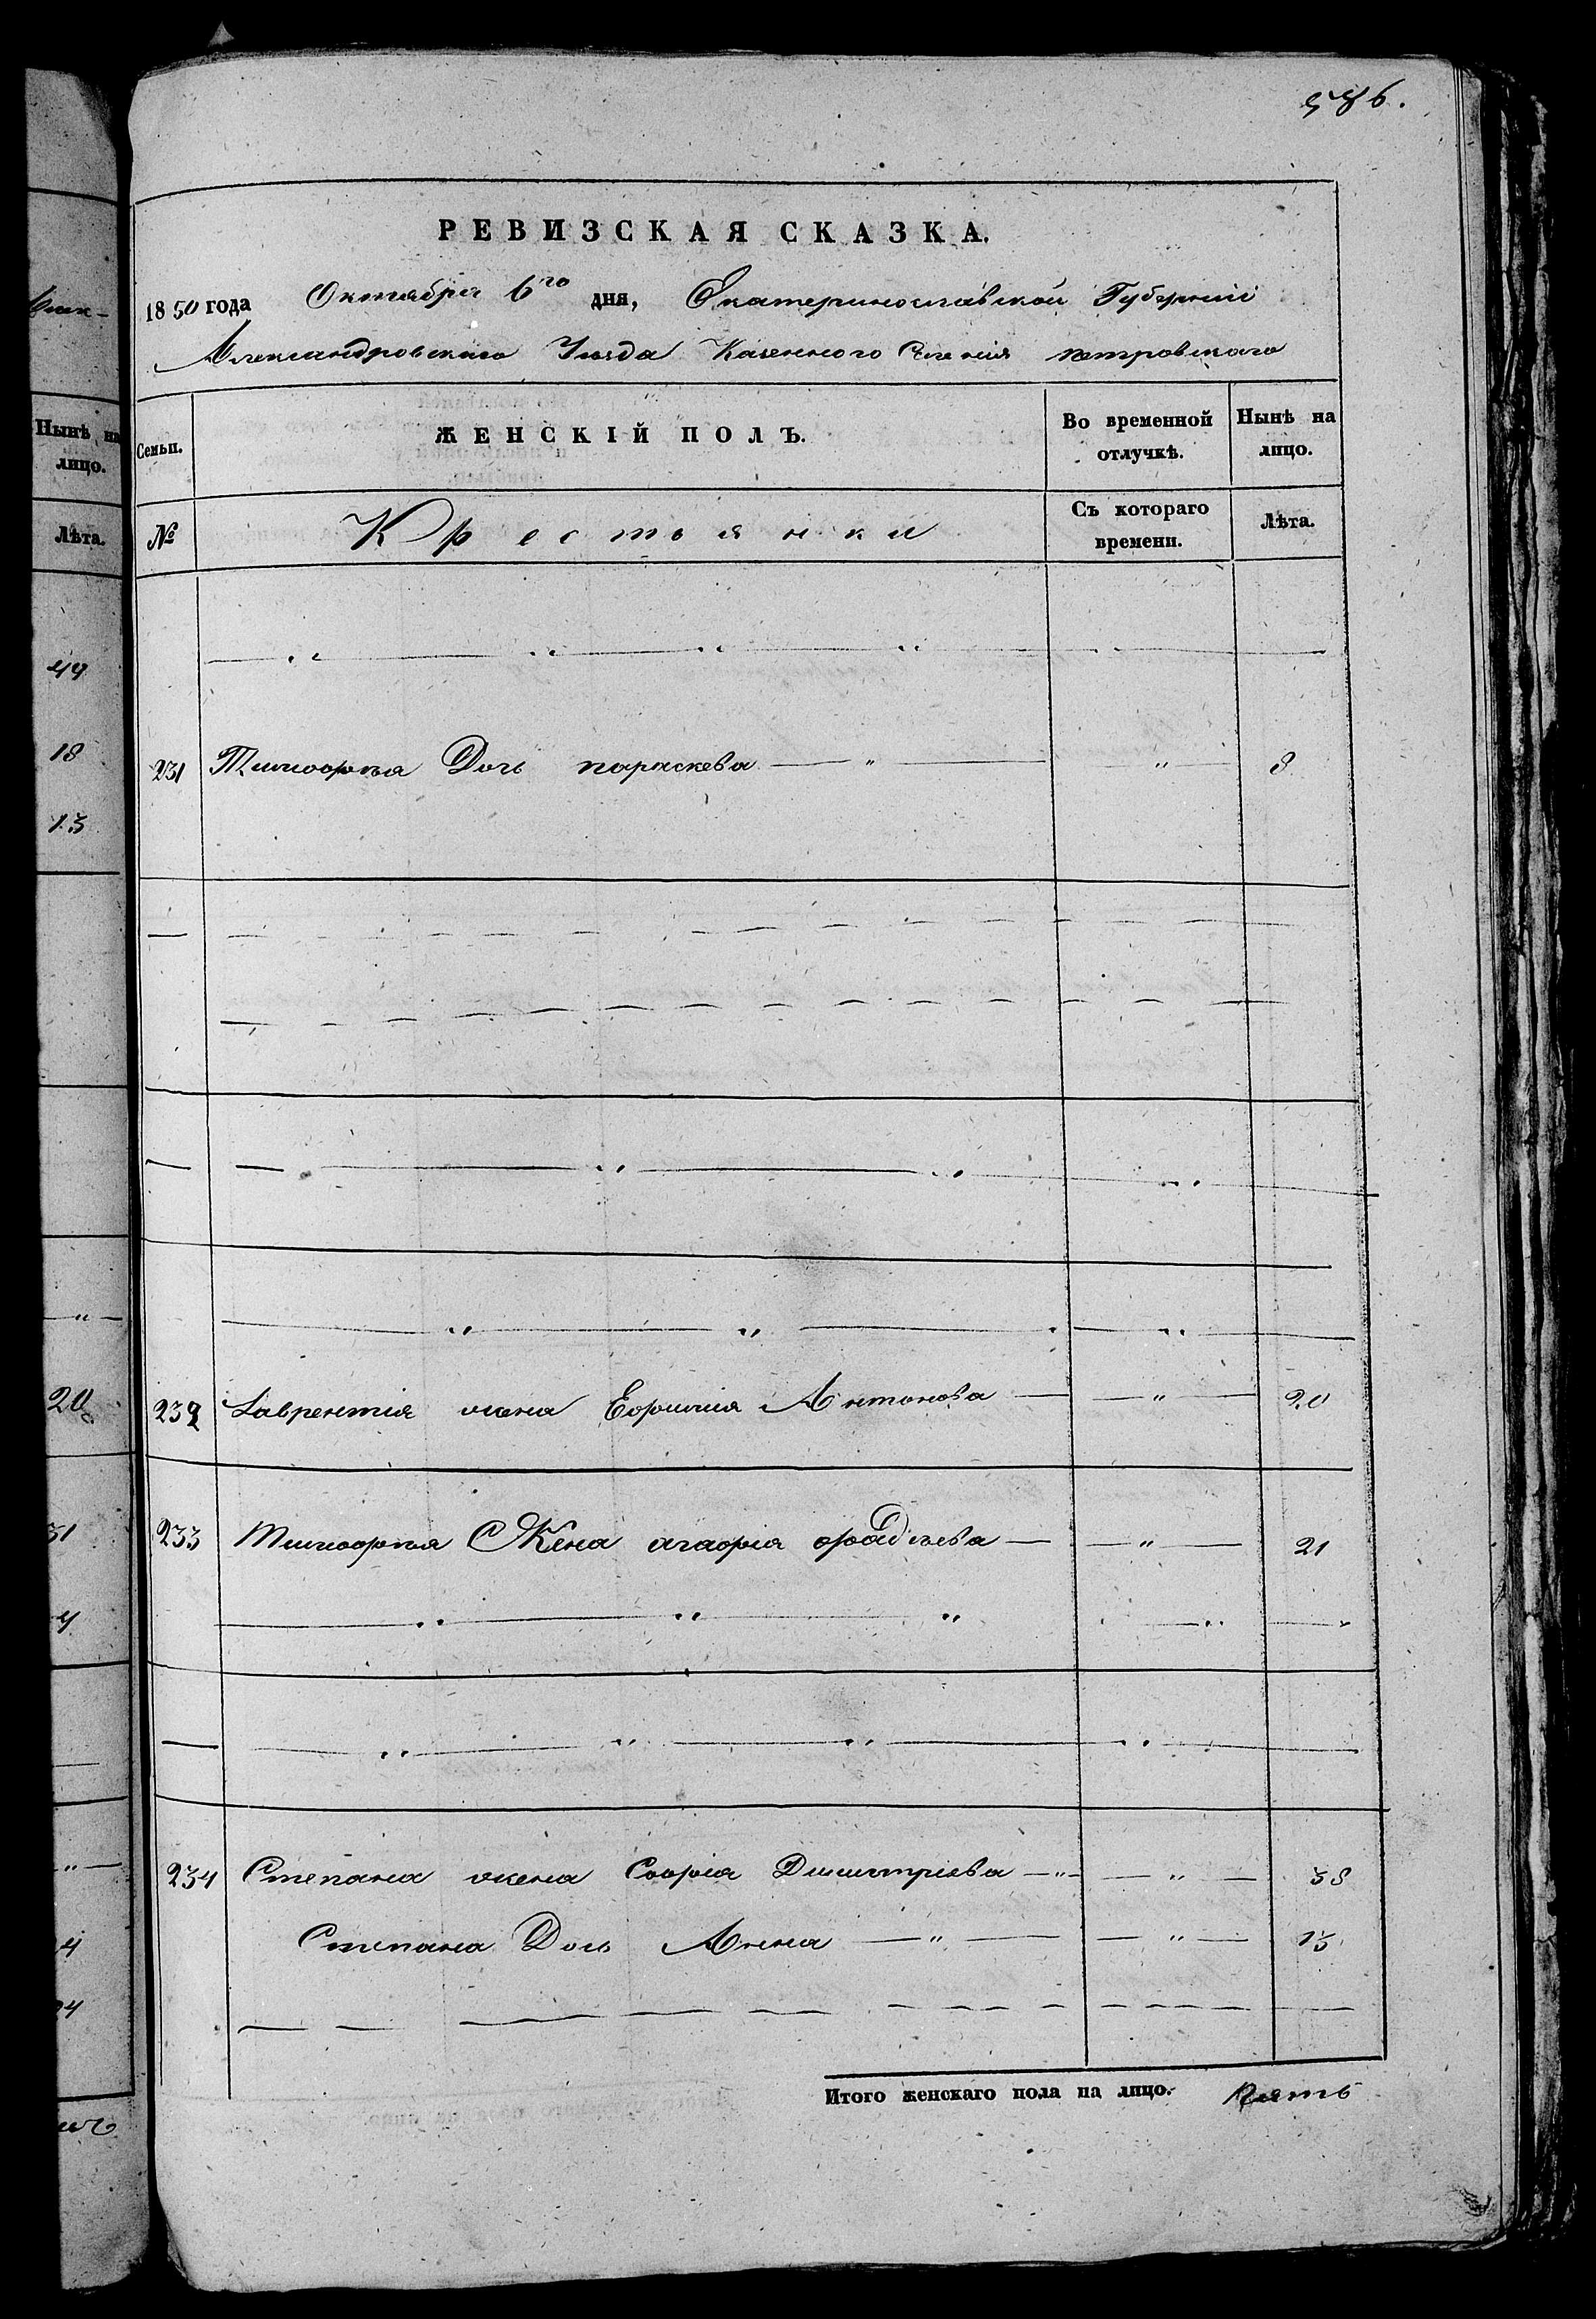 586.
РЕВИЗСКАЯ СКАЗКА.
1850 года Октября 6го дня, Екатеринославской Губернии
Александровского Уезда Казенного Селения петровского
Семьи. ЖЕНСКІЙ ПОЛЪ. Во временной отлучкѣ. Нынѣ на лицо.
№ Крестьянки Съ котораго времени. Лѣта.
231 Тимофея Дочь параскева — " — " — 8
232 Лаврентия жена Ефимия Антонова — — " — 20
233 Тимофея Жена агафия фадеева — — " — 21
234 Степана жена София Димитриева — " — — " — 38
Степана Дочь Анна — " — — " — 13
Итого женскаго пола на лицо. Пять
Нынѣ на
лицо.
Лѣта.
44
18
13
20
31
4
4